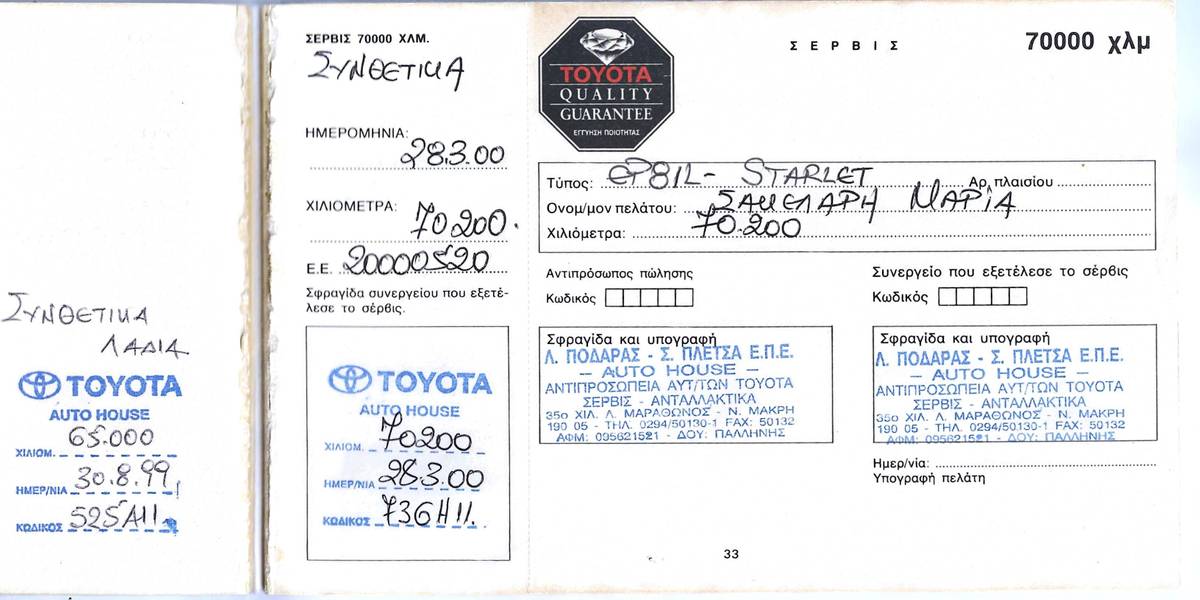 ΣΥΝΘΕΤΙΚΑ
ΛΑΔΙΑ
TOYOTA
AUTO HOUSE
65.000
ΧΙΛΙΟΜ.
30.8.99
ΗΜΕΡ/ΝΙΑ
525A11
ΚΩΔΙΚΟΣ
ΣΕΡΒΙΣ 70000 ΧΛΜ.
ΣΥΝΘΕΤΙΚΑ
ΗΜΕΡΟΜΗΝΙΑ: 28.3.00
ΧΙΛΙΟΜΕΤΡΑ: 70.200.
Ε.Ε. 20000520
Σφραγίδα συνεργείου που εξετέ-
λεσε το σέρβις.
TOYOTA
AUTO HOUSE
ΧΙΛΙΟΜ. 70200
ΗΜΕΡ/ΝΙΑ 28.3.00
ΚΩΔΙΚΟΣ 736H11.
TOYOTA
QUALITY
GUARANTEE
ΕΓΓΥΗΣΗ ΠΟΙΟΤΗΤΑΣ
ΣΕΡΒΙΣ
70000 χλμ
Τύπος: EP81L- STARLET Αρ. πλαισίου
Ονομ/μον πελάτου: ΣΑΚΕΛΑΡΗ ΜΑΡΙΑ
Χιλιόμετρα: 70.200
Αντιπρόσωπος πώλησης
Κωδικός
Σφραγίδα και υπογραφή
Λ. ΠΟΔΑΡΑΣ - Σ. ΠΛΕΤΣΑ Ε.Π.Ε.
— AUTO HOUSE —
ΑΝΤΙΠΡΟΣΩΠΕΙΑ ΑΥΤ/ΤΩΝ TOYOTA
ΣΕΡΒΙΣ - ΑΝΤΑΛΛΑΚΤΙΚΑ
35ο ΧΙΛ. Λ. ΜΑΡΑΘΩΝΟΣ - Ν. ΜΑΚΡΗ
190 05 - ΤΗΛ. 0294/50130-1 FAX: 50132
ΑΦΜ: 095621521 - ΔΟΥ: ΠΑΛΛΗΝΗΣ
Συνεργείο που εξετέλεσε το σέρβις
Κωδικός
Σφραγίδα και υπογραφή
Λ. ΠΟΔΑΡΑΣ - Σ. ΠΛΕΤΣΑ Ε.Π.Ε.
— AUTO HOUSE —
ΑΝΤΙΠΡΟΣΩΠΕΙΑ ΑΥΤ/ΤΩΝ TOYOTA
ΣΕΡΒΙΣ - ΑΝΤΑΛΛΑΚΤΙΚΑ
35ο ΧΙΛ. Λ. ΜΑΡΑΘΩΝΟΣ - Ν. ΜΑΚΡΗ
190 05 - ΤΗΛ. 0294/50130-1 FAX: 50132
ΑΦΜ: 095621521 - ΔΟΥ: ΠΑΛΛΗΝΗΣ
Ημερ/νία:
Υπογραφή πελάτη
33